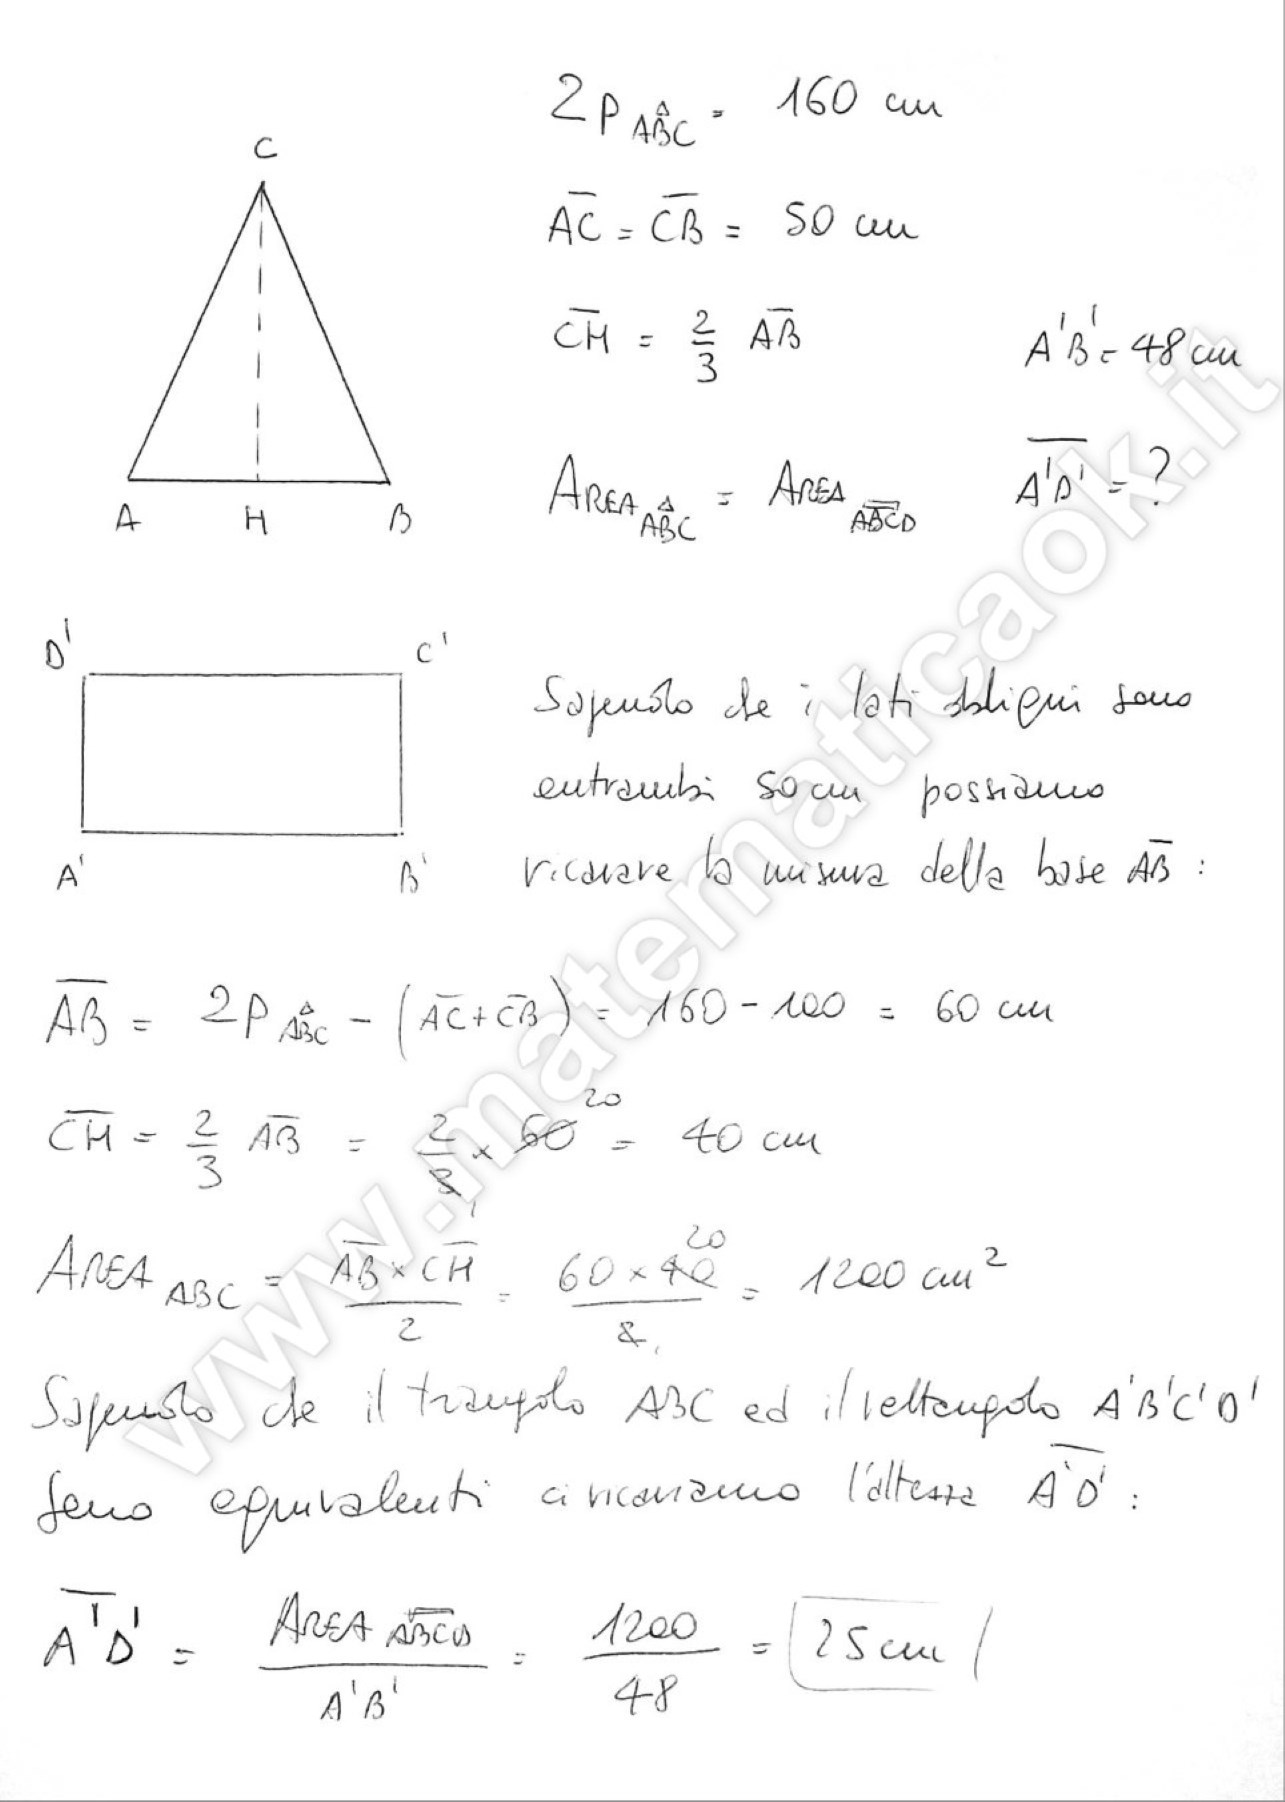 2p ABC = 160 cm
C
AC = CB = 50 cm
CH = 2/3 AB
A'B' = 48 cm
Area ABC = Area ABCD
A'D' = ?
A H B
D' C'
A' B'
Sapendo che i lati obliqui sono
entrambi 50 cm possiamo
ricavare la misura della base AB :
AB = 2p ABC - (AC + CB) = 160 - 100 = 60 cm
CH = 2/3 AB = 2/3 × 60 = 40 cm
20
1
Area ABC = AB × CH / 2 = 60 × 40 / 2 = 1200 cm²
20
1
Sapendo che il triangolo ABC ed il rettangolo A'B'C'D'
sono equivalenti ci ricaviamo l'altezza A'D' :
A'D' = Area ABCD / A'B' = 1200 / 48 = 25 cm
www.matematicaok.it